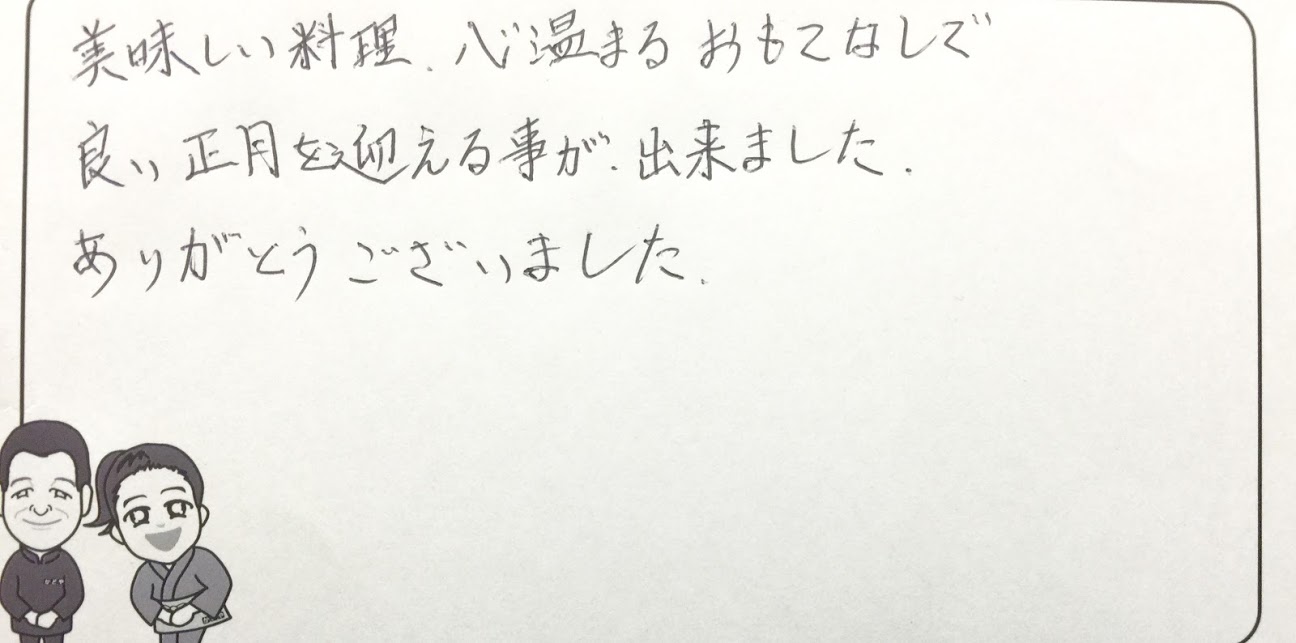 美味しい料理、心温まるおもてなしで
良い正月を迎える事が、出来ました。
ありがとうございました。